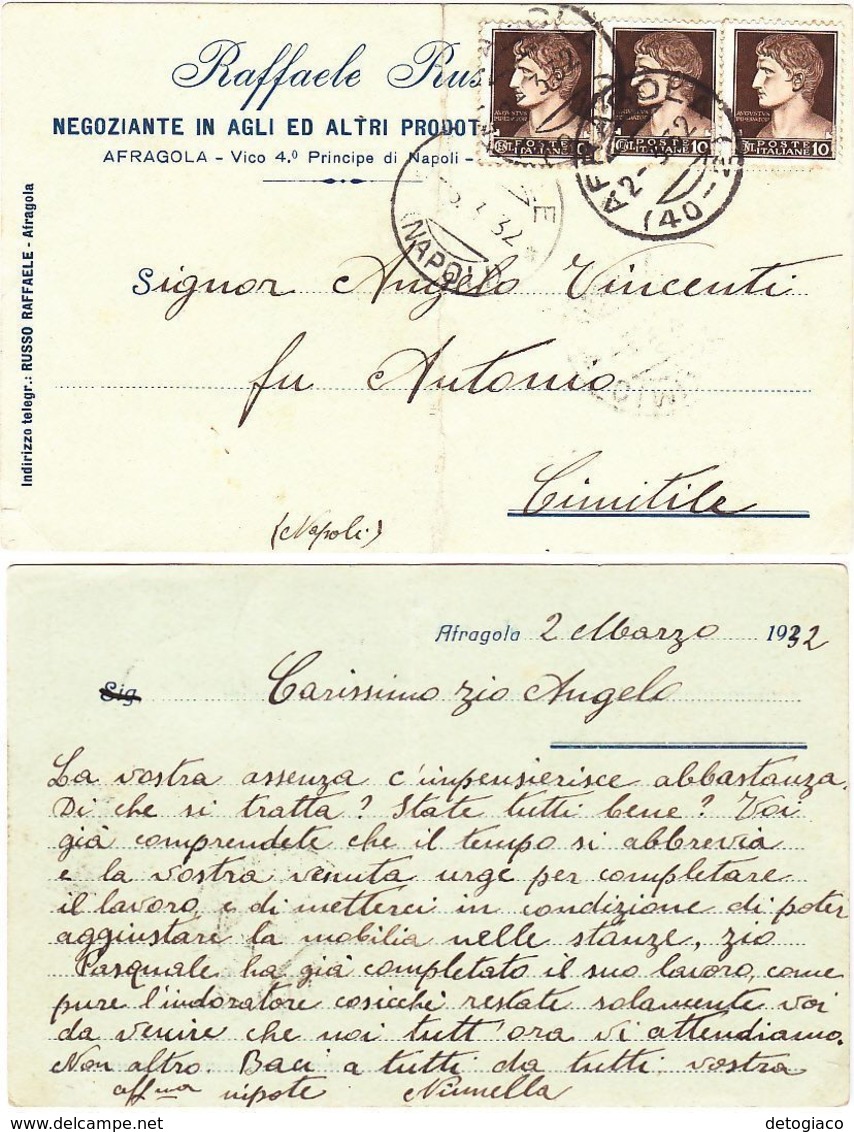 Raffaele Rus
NEGOZIANTE IN AGLI ED ALTRI PRODOT
AFRAGOLA - Vico 4.º Principe di Napoli -
AUGUSTUS IMPERATOR CENT. POSTE ITALIANE 10
AUGUSTUS IMPERATOR CENT. POSTE ITALIANE 10
AUGUSTUS IMPERATOR CENT. POSTE ITALIANE 10
AFRAGOLA
(NAPOLI)
Indirizzo telegr.: RUSSO RAFFAELE - Afragola
Signor Angelo Vincenti
fu Antonio
Cimitile
(Napoli)
Afragola 2 Marzo 1932
Sig
Carissimo zio Angelo
La vostra assenza c'impensierisce abbastanza.
Di che si tratta? State tutti bene? Voi
già comprendete che il tempo si abbrevia
e la vostra venuta urge per completare
il lavoro, e di metterci in condizione di poter
aggiustare la mobilia nelle stanze, zio
Pasquale ha già completato il suo lavoro, come
pure l'indoratore cosicchè restate solamente voi
da venire che noi tutt'ora vi attendiamo.
Non altro. Baci a tutti da tutti vostra
affma nipote Ninnella
detogiaco